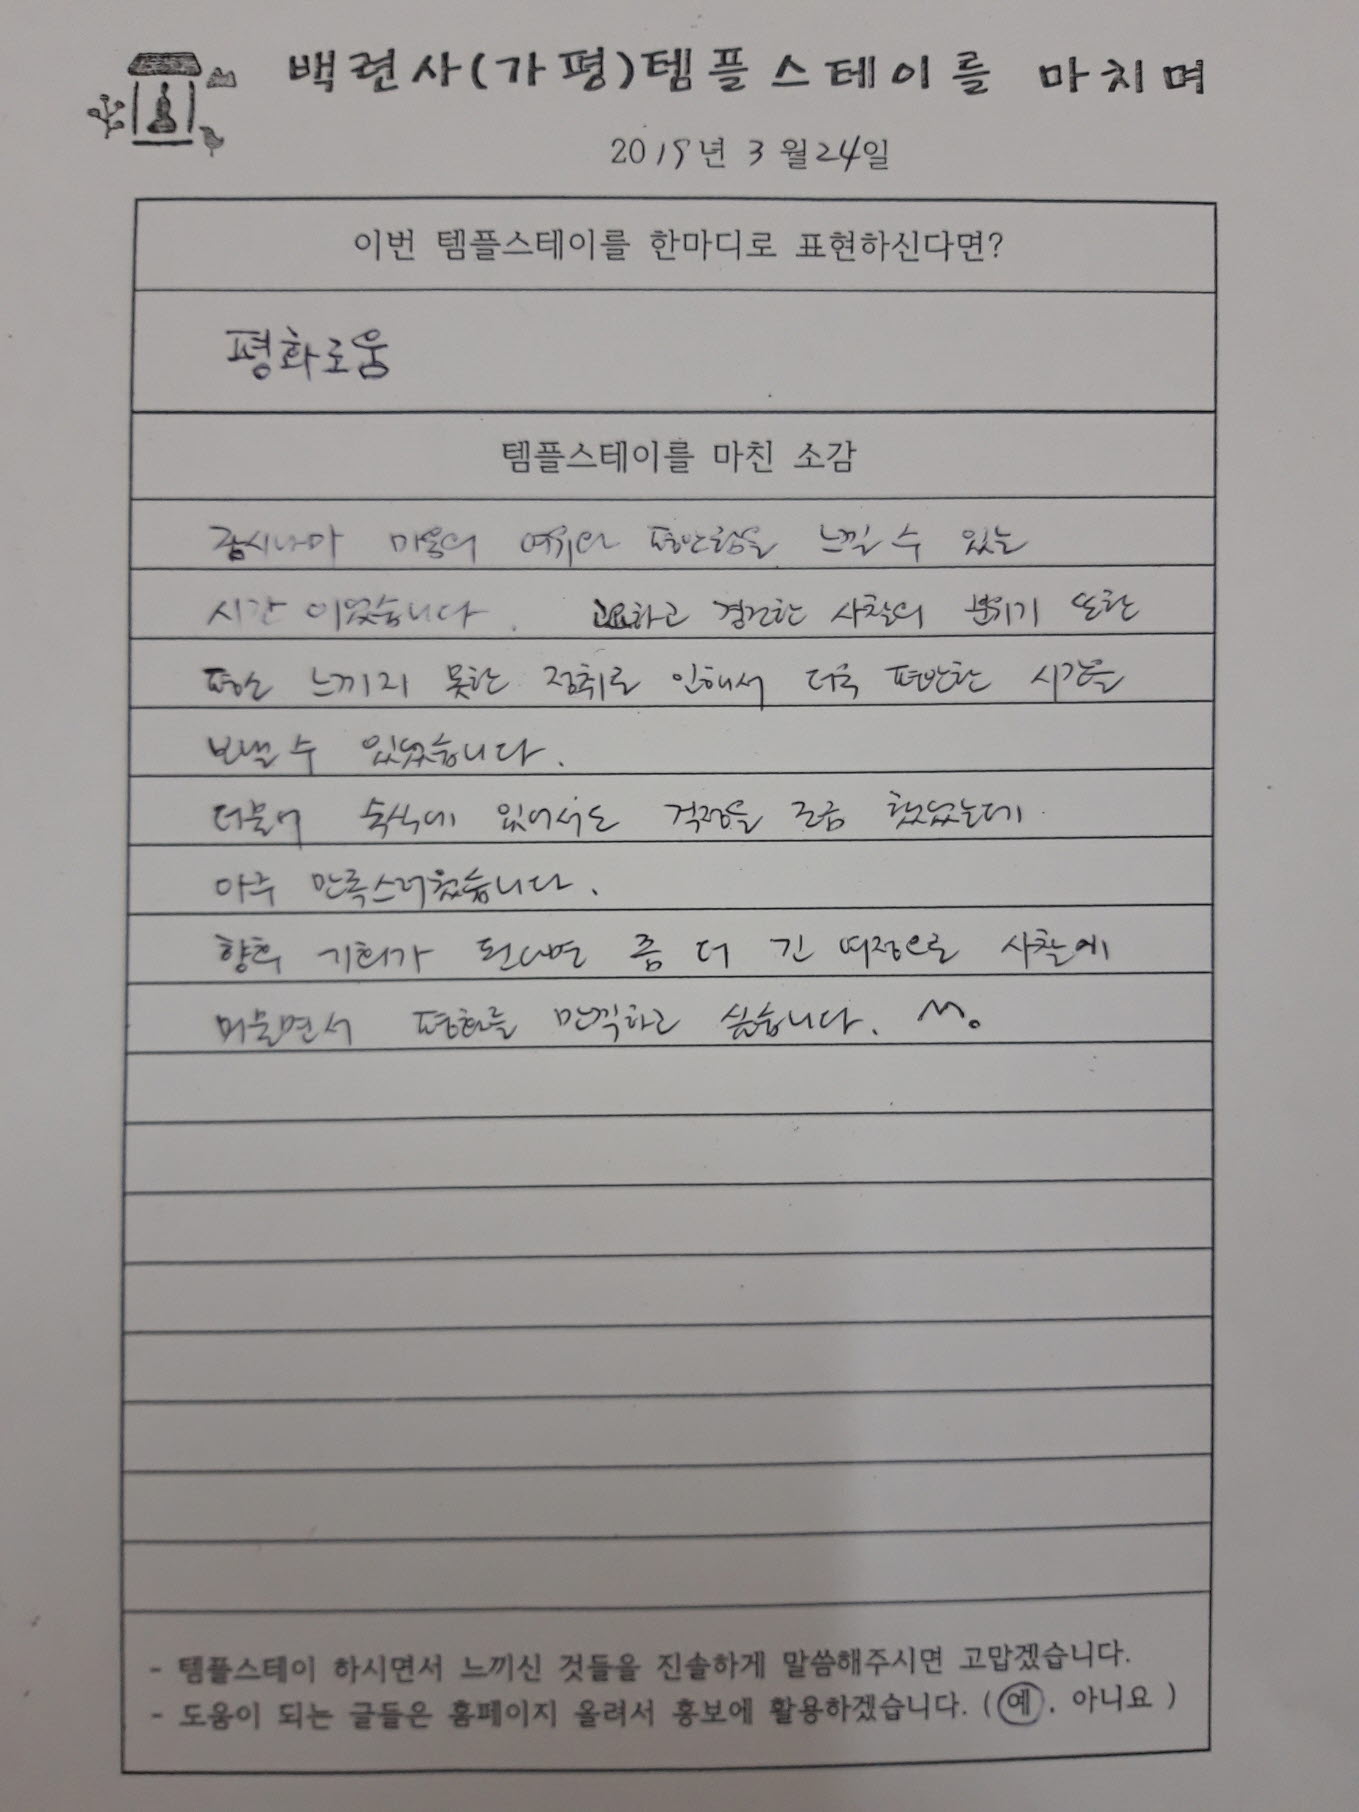 백련사(가평)템플스테이를 마치며
2019년 3월 24일
이번 템플스테이를 한마디로 표현하신다면?
평화로움
템플스테이를 마친 소감
잠시나마 마음의 여유와 평안함을 느낄 수 있는
시간 이었습니다. 고요하고 경건한 사찰의 분위기 또한
평소 느끼지 못한 정취로 인해서 더욱 편안한 시간을
보낼 수 있었습니다.
더불어 숙식에 있어서도 걱정을 조금 했었는데
아주 만족스러웠습니다.
향후 기회가 된다면 좀 더 긴 여정으로 사찰에
머물면서 평화를 만끽하고 싶습니다.
- 템플스테이 하시면서 느끼신 것들을 진솔하게 말씀해주시면 고맙겠습니다.
- 도움이 되는 글들은 홈페이지 올려서 홍보에 활용하겠습니다. (예. 아니요)